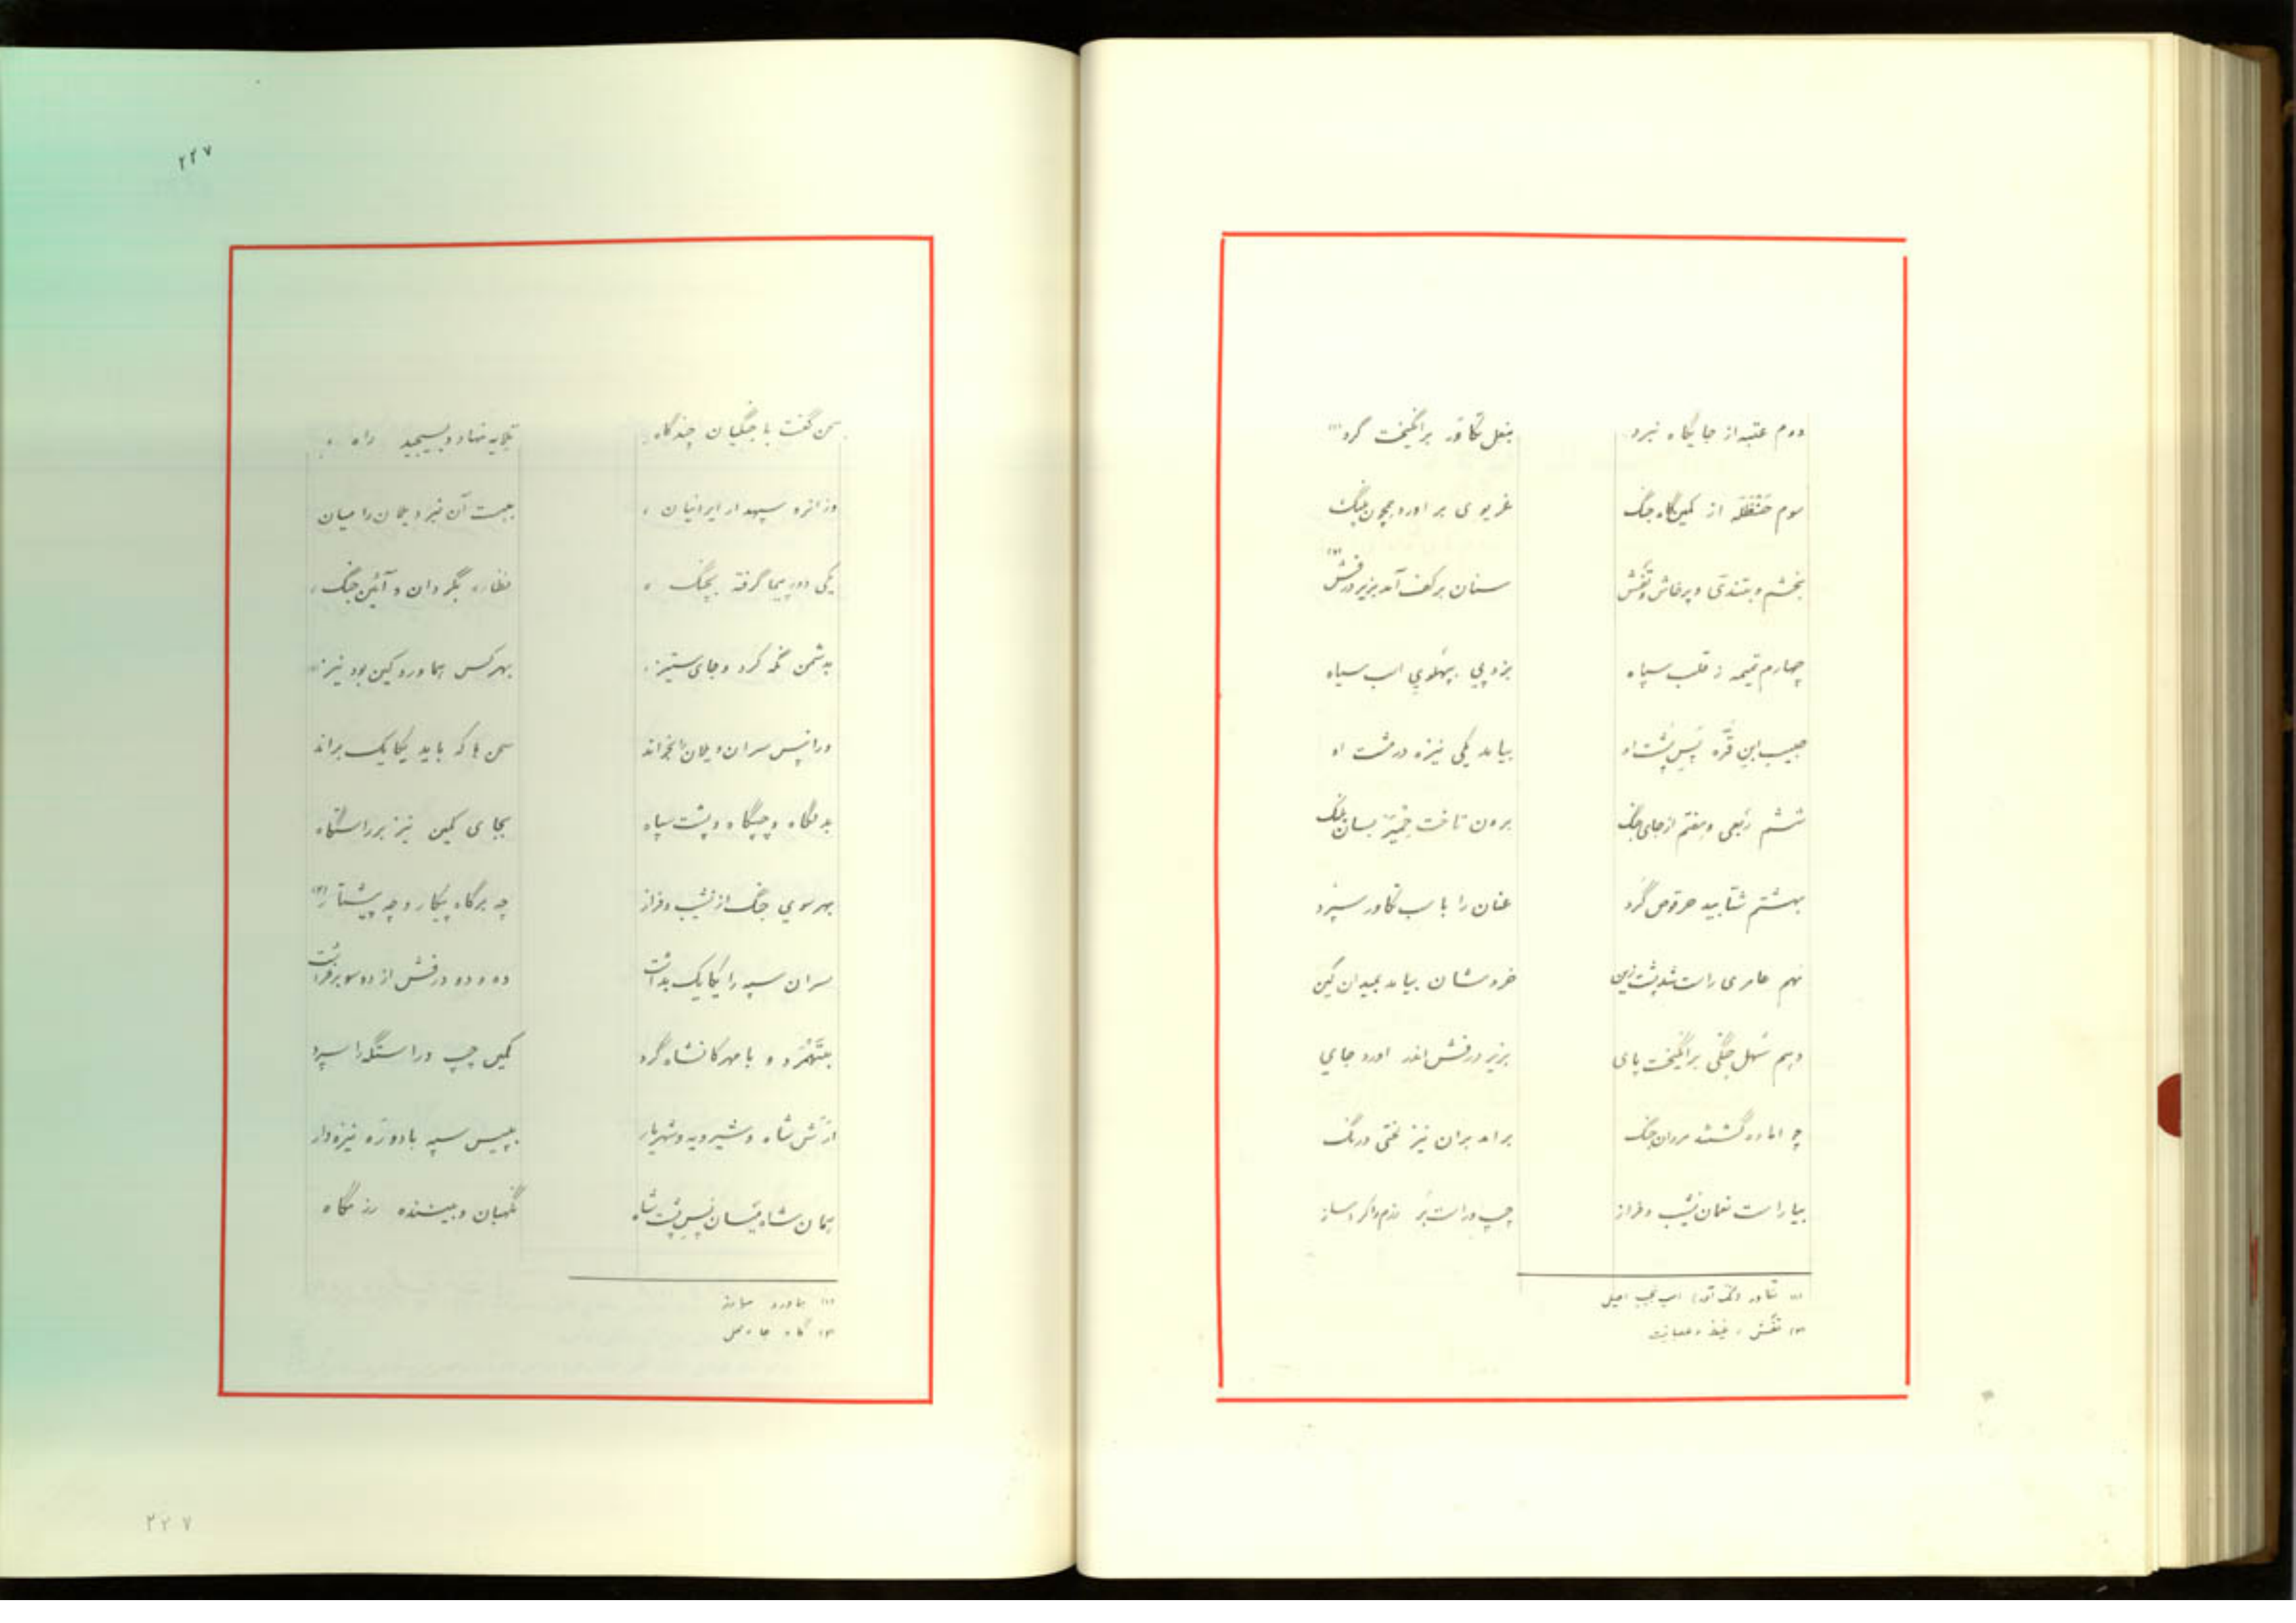 دوم عتبه از جایگاه نبرد بنعل تکاور برانگیخت گرد (۱)
سوم حنظله از کمین‌گاه جنگ غریوی بر اورد همچون پلنگ
بخشم و بتندی و پرخاش و تفش (۲) سنان بر کف آمد بزیر درفش
چهارم تمیمه ز قلب سپاه بزد پی بپهلوی اسب سیاه
حبیب ابن قره پس پشت او بیامد یکی نیزه در مشت او
ششم ربعی و هفتم از جای جنگ برون تاخت بسان پلنگ
بهشتم شتابید حرقوص گرد عنان را باسب تکاور سپرد
نهم عامری راست شد پشت زین خروشان بیامد بمیدان کین
دهم سهل جنگی برانگیخت پای بزیر درفش اندر اورد جای
چو اماده گشتند مردان جنگ برامد بران نیز لختی درنگ
بیاراست نعمان نشیب و فراز چپ و راست بر رزم را کرد ساز
(۱) تکاور (تک آور) اسب نجیب اصیل
(۲) تفش، غیظ و عصبانیت
۲۲۷
سخن گفت با جنگیان چندگاه، تلایه نهاد و بسیجید راه،
وزانرو سپهدار ایرانیان، ببست آن نبرد یلان را میان
یکی دورپیما گرفته بچنگ، نظاره بگردان و آئین جنگ،
بدشمن نگه کرد و جای ستیز، بهر کس هماورد کین بود نیز (۱)
وزانپس سران و یلان را بخواند سخن ها که باید یکایک براند
بدلگاه و چپگاه و پشت سپاه بجای کمین نیز بر راستگاه
بهر سوی جنگ از نشیب و فراز چه برگاه پیکار و چه پیشتاز (۲)
سران سپه را یکایک بداشت ده و دو درفش از دو سو برفراشت
و با مهرکانشاه گرد کمین چپ و راستگه را سپرد
ارتش شاه و شیرویه و شهریار بپیس سپه با دو ره نیزه‌دار
همان شاه میسان پس پشت شاه نگهبان و بیننده رزمگاه
(۱) هماورد مبارز
(۲) گاه جا و محل
۲۲۷